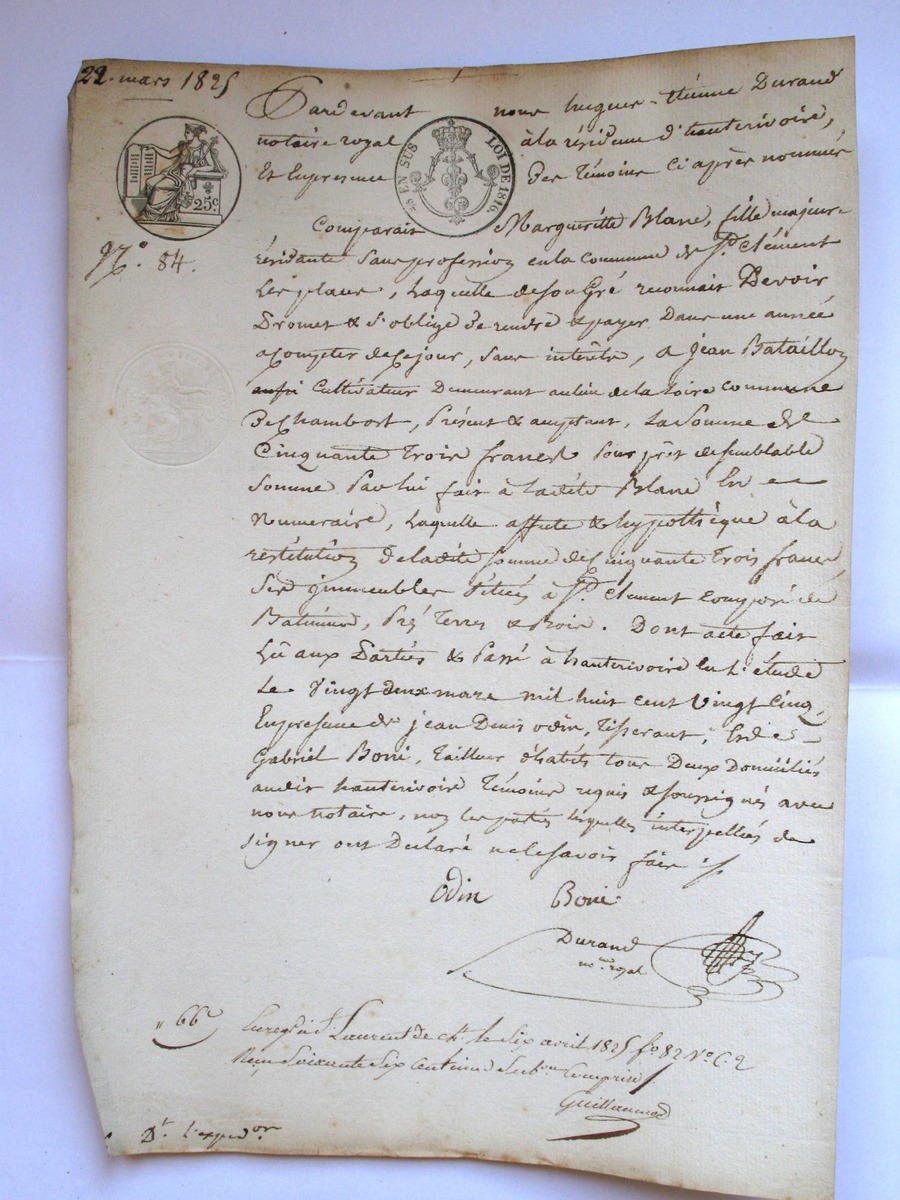 22. mars 1825
Pardevant nous hugues-Etienne Durand
notaire royal à la résidence d'hauterivoire,
Et Enpresence des Témoins Ci après nommés
25c
5c EN SUS
LOI DE 1816.
Comparait Margueritte Blanc, fille majeure
N.o 84.
résidante Sans profession en la Commune de St. Clément
Les places, Laquelle de Son Gré reconnait Devoir
Promet & S'oblige De rendre & payer Dans une année
a Compter de Ce jour, Sans intérêts, a Jean Bataillon
Cultivateur Demeurant au lieu de la Loire Commune
De Chambost, Présent & acceptant, La Somme de
Cinquante Trois francs Pour prêt de Semblable
Somme Par lui fait à Ladite Blanc En
Numeraire, Laquelle affecte & hypothèque à la
restitution de ladite Somme de Cinquante Trois francs
Ses immeubles Situés à St. Clément Composé de
Batiment, Pré Terres & Bois. Dont acte fait
Lû aux Parties & Passé à hauterivoire En L'étude
Le Vingt deux mars mil huit cent Vingt Cinq,
En presence de jean Denis odin, Tisserant, & de
Gabriel Boni, Tailleur d'habits tous Deux Domiciliés
audit hauterivoire Témoins requis & soussignés avec
nous notaire, non les parties lesquelles interpellées de
signer ont Déclaré ne le savoir faire
Odin Boni
Durand
nore royal
" 66c Enregé à St Laurent de Ch. le Six avril 1825 fo 82 No C. 2
Reçu Soixante Six Centimes Subon Comprise
Guillaumod
Dt. l'expedon